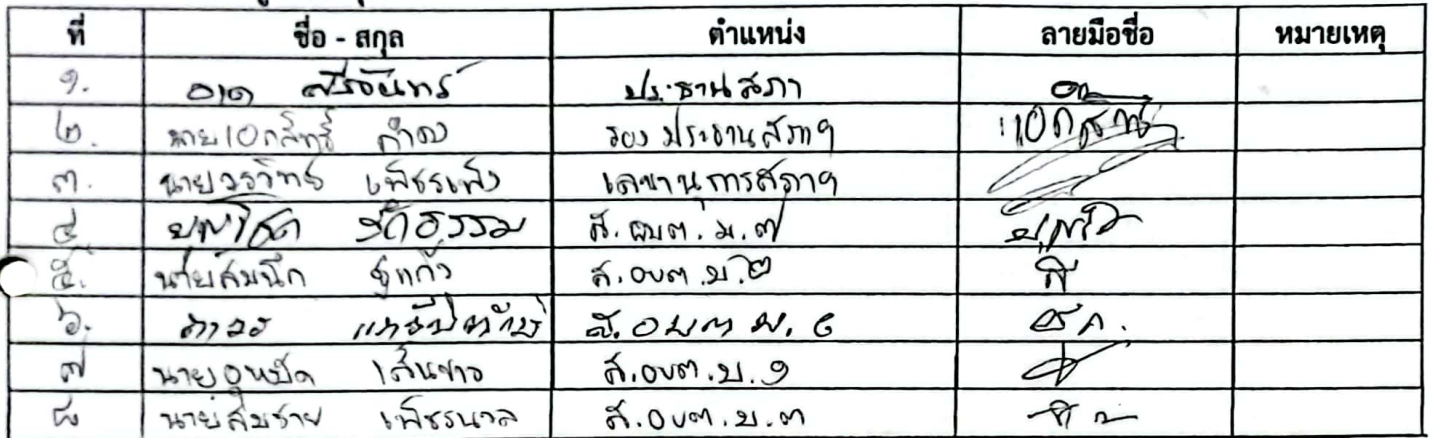 ที่ ชื่อ - สกุล ตำแหน่ง ลายมือชื่อ หมายเหตุ
๑. อาด ศรีอินทร์ ประธานสภา
๒. นายเอกสิทธิ์ ดำดง รองประธานสภาฯ เอกสิทธิ์
๓. นายวรวิทย์ เพ็ชรเพ็ง เลขานุการสภาฯ
๔ บุญโชติ รักธรรม ส.อบต.ม.๗
๕. นายสมนึก ชูแก้ว ส.อบต.ม.๒
๖. ถาวร ส.อบต ม.๔
๗ นายอุหมัด เส้นขาว ส.อบต.ม.๑
๘ นายสมชาย เพ็ชรนวล ส.อบต.ม.๓